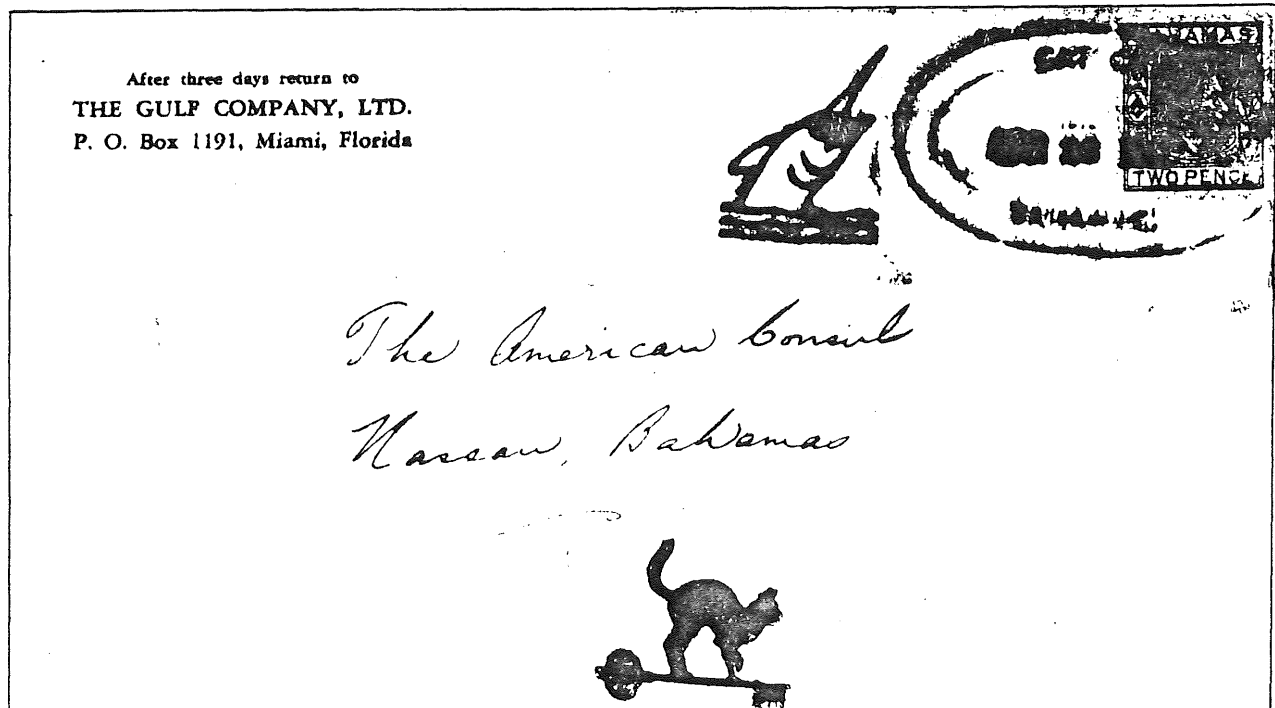 After three days return to
THE GULF COMPANY, LTD.
P. O. Box 1191, Miami, Florida
CAT
BAHAMAS
TWO PENCE
The American Consul
Nassau, Bahamas